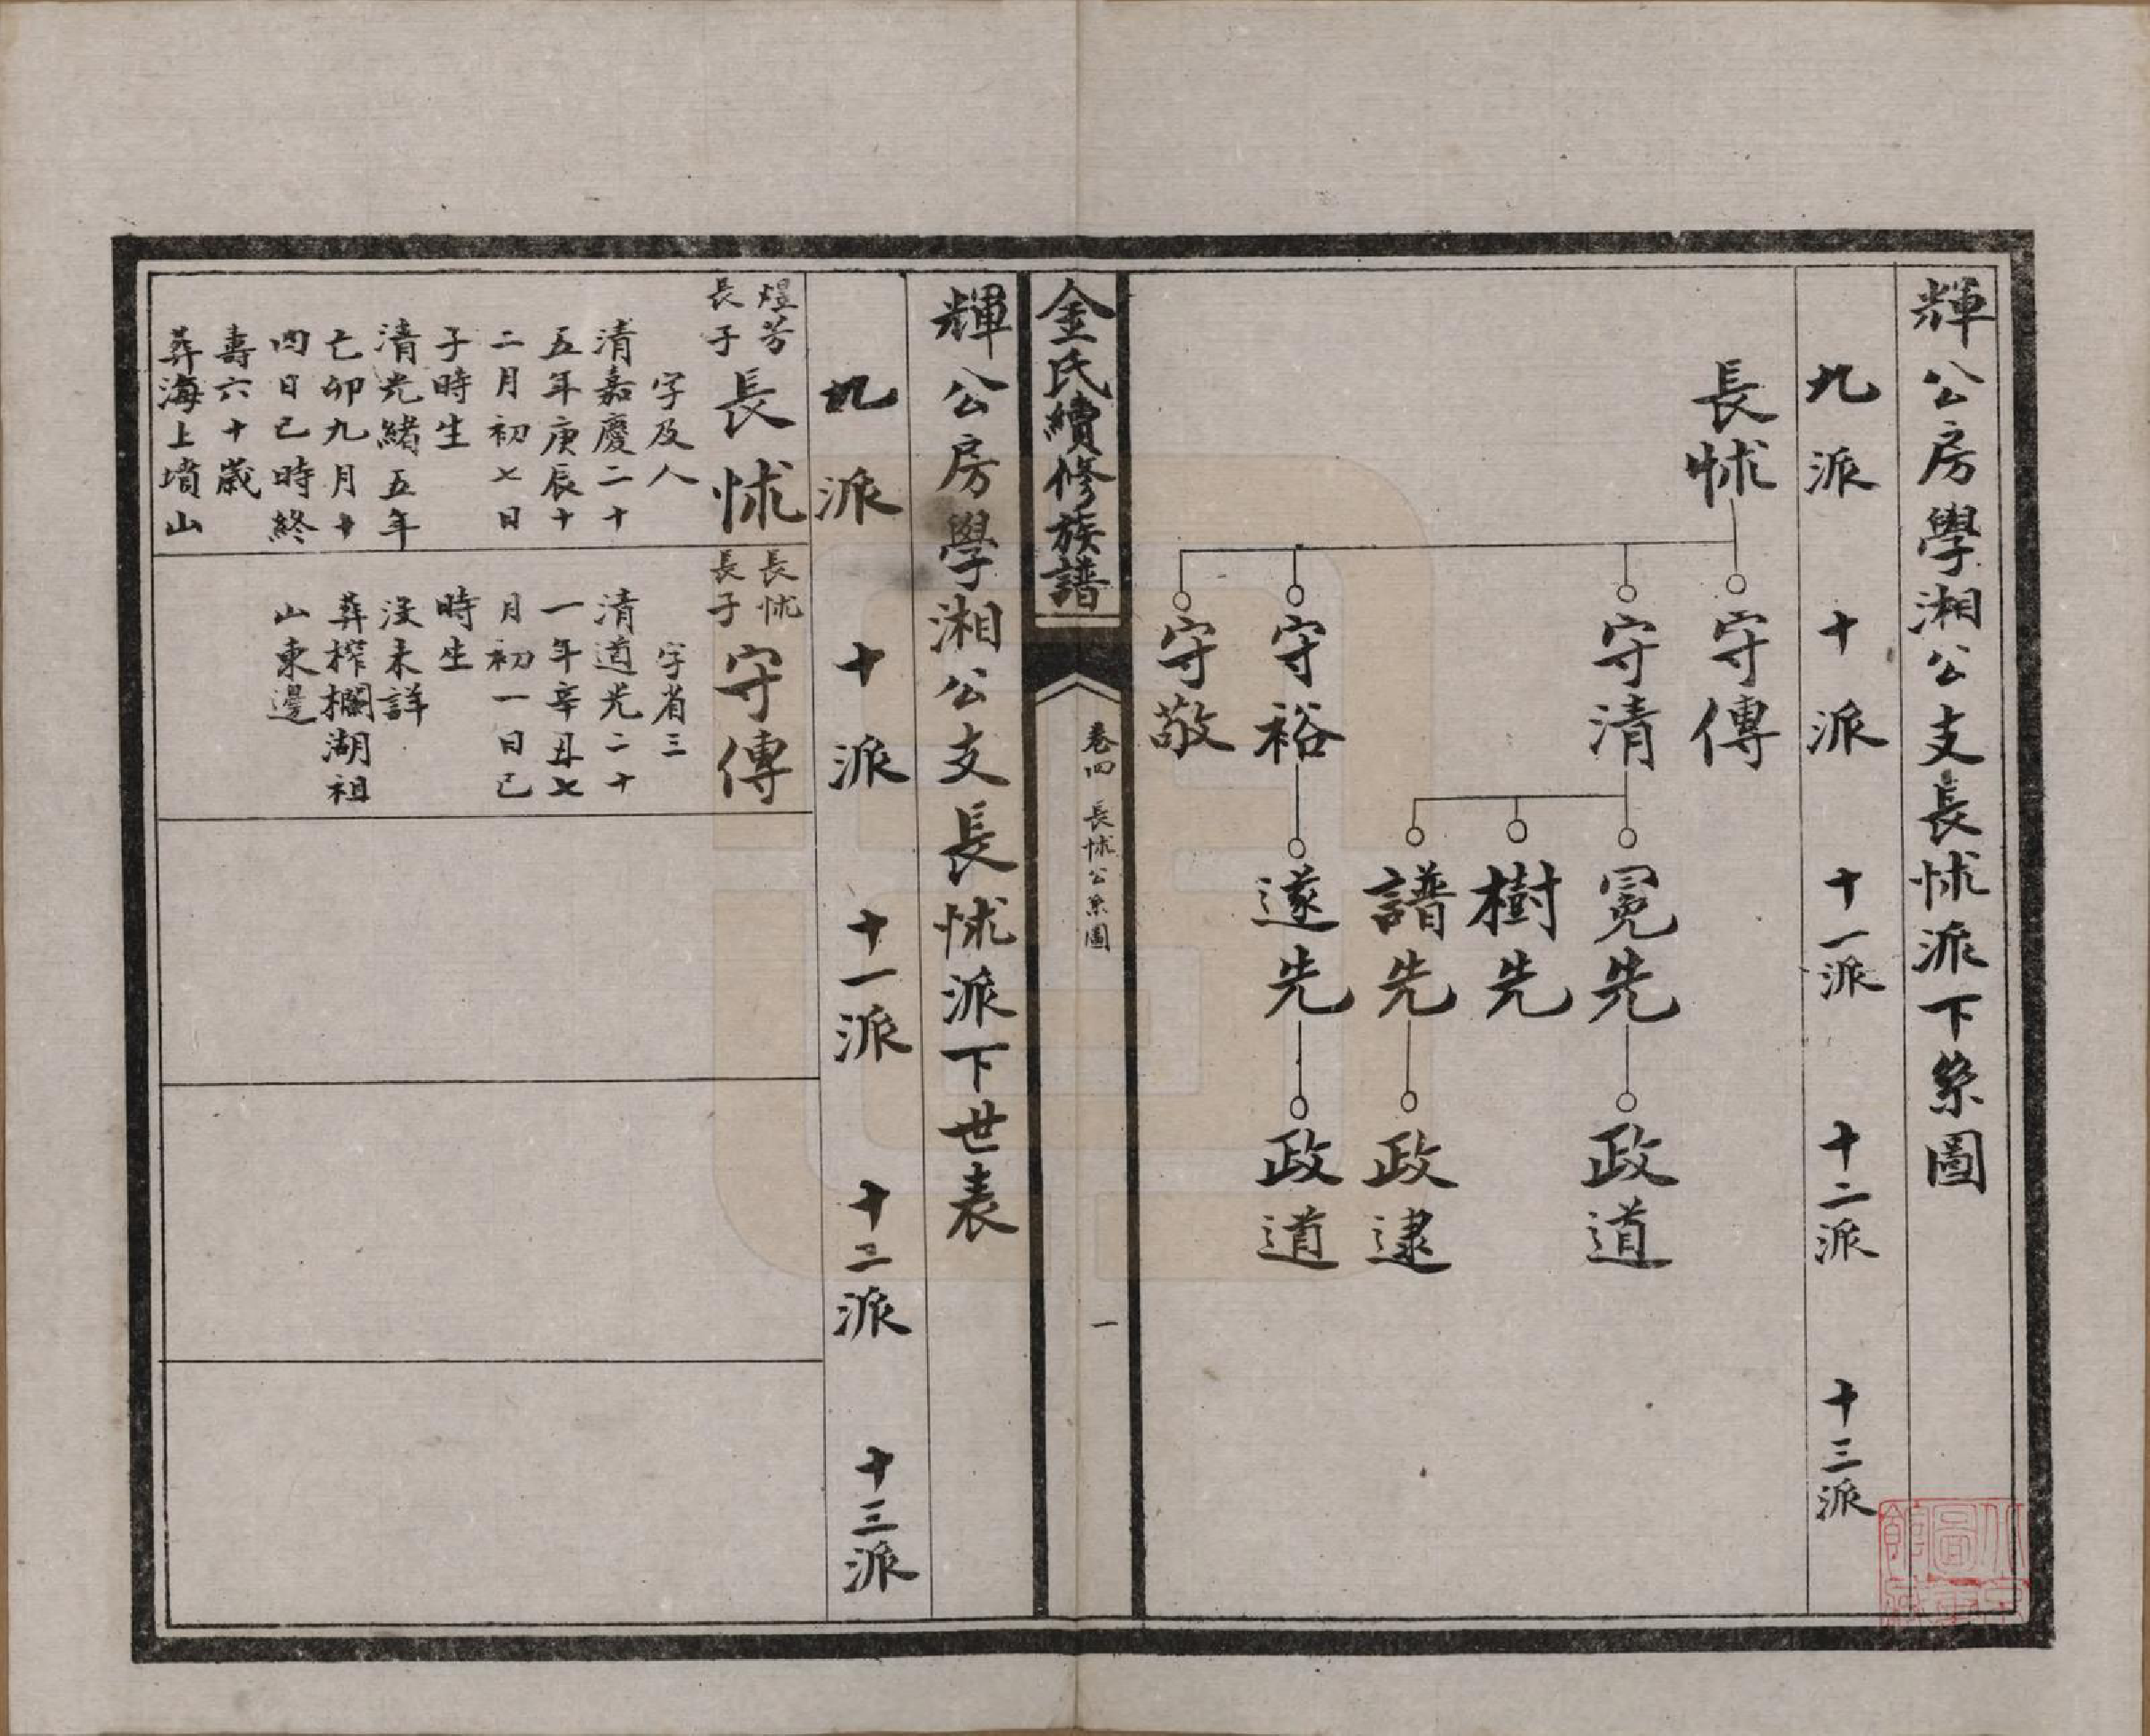 輝公房學湘公支長怵派下系圖
九派 十派 十一派 十二派 十三派
長怵
守傳
守清
守裕
守敬
冕先
樹先
譜先
遂先
政道
政逮
政道
金氏續修族譜
卷四 長怵公系圖
一
輝公房學湘公支長怵派下世表
九派 十派 十一派 十二派 十三派
煜芳
長子
長怵
字及人
清嘉慶二十
五年庚辰十
二月初七日
子時生
清光緒五年
己卯九月十
四日巳時終
壽六十歲
葬海上墳山
長怵
長子
守傳
字省三
清道光二十
一年辛丑七
月初一日巳
時生
沒未詳
葬榨欄湖祖
山東邊